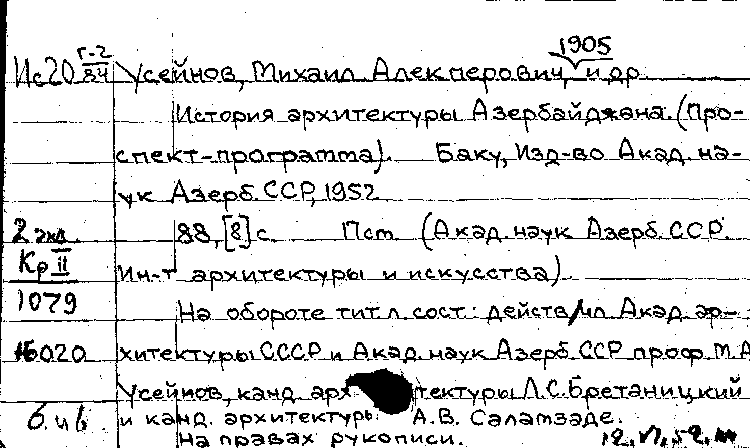 1905
Ис20 г-2/84 Усейнов, Михаил Алекперович, и др
История архитектуры Азербайджана. (Про-
спект-программа). Баку, Изд-во Акад. на-
ук Азерб. ССР, 1952
2 экз. 88, [8] с. Пст. (Акад. наук Азерб. ССР.
Кр II Ин-т архитектуры и искусства)
1079 На обороте тит. л. сост.: действ. чл. Акад. ар-
16020 хитектуры СССР и Акад. наук Азерб. ССР проф. М.А.
Усейнов, канд. арх тектуры Л.С. Бретаницкий
и канд. архитектуры А.В. Саламзаде.
На правах рукописи.